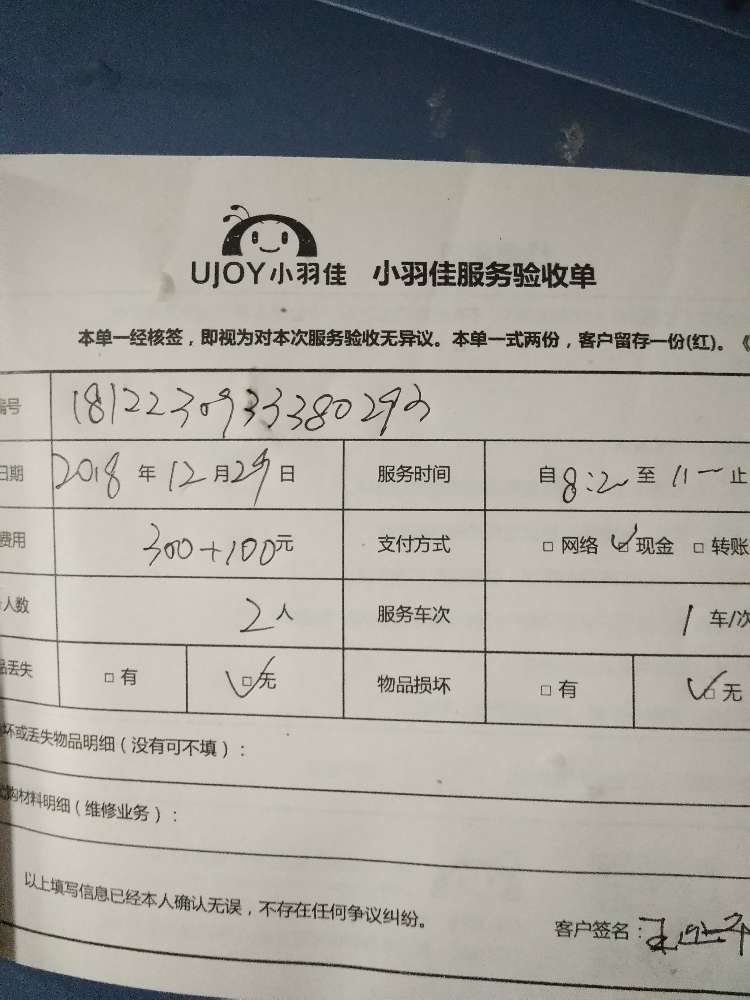 UJOY小羽佳 小羽佳服务验收单
本单一经核签，即视为对本次服务验收无异议。本单一式两份，客户留存一份(红)。《
编号 18122309333380293
日期 2018 年 12 月 29 日 服务时间 自 8:2 至 11 一 止
费用 300+100元 支付方式 □ 网络 ☑ 现金 □ 转账
人数 2人 服务车次 1 车/次
品丢失 □ 有 ☑ 无 物品损坏 □ 有 ☑ 无
坏或丢失物品明细（没有可不填）：
购材料明细（维修业务）：
以上填写信息已经本人确认无误，不存在任何争议纠纷。
客户签名：